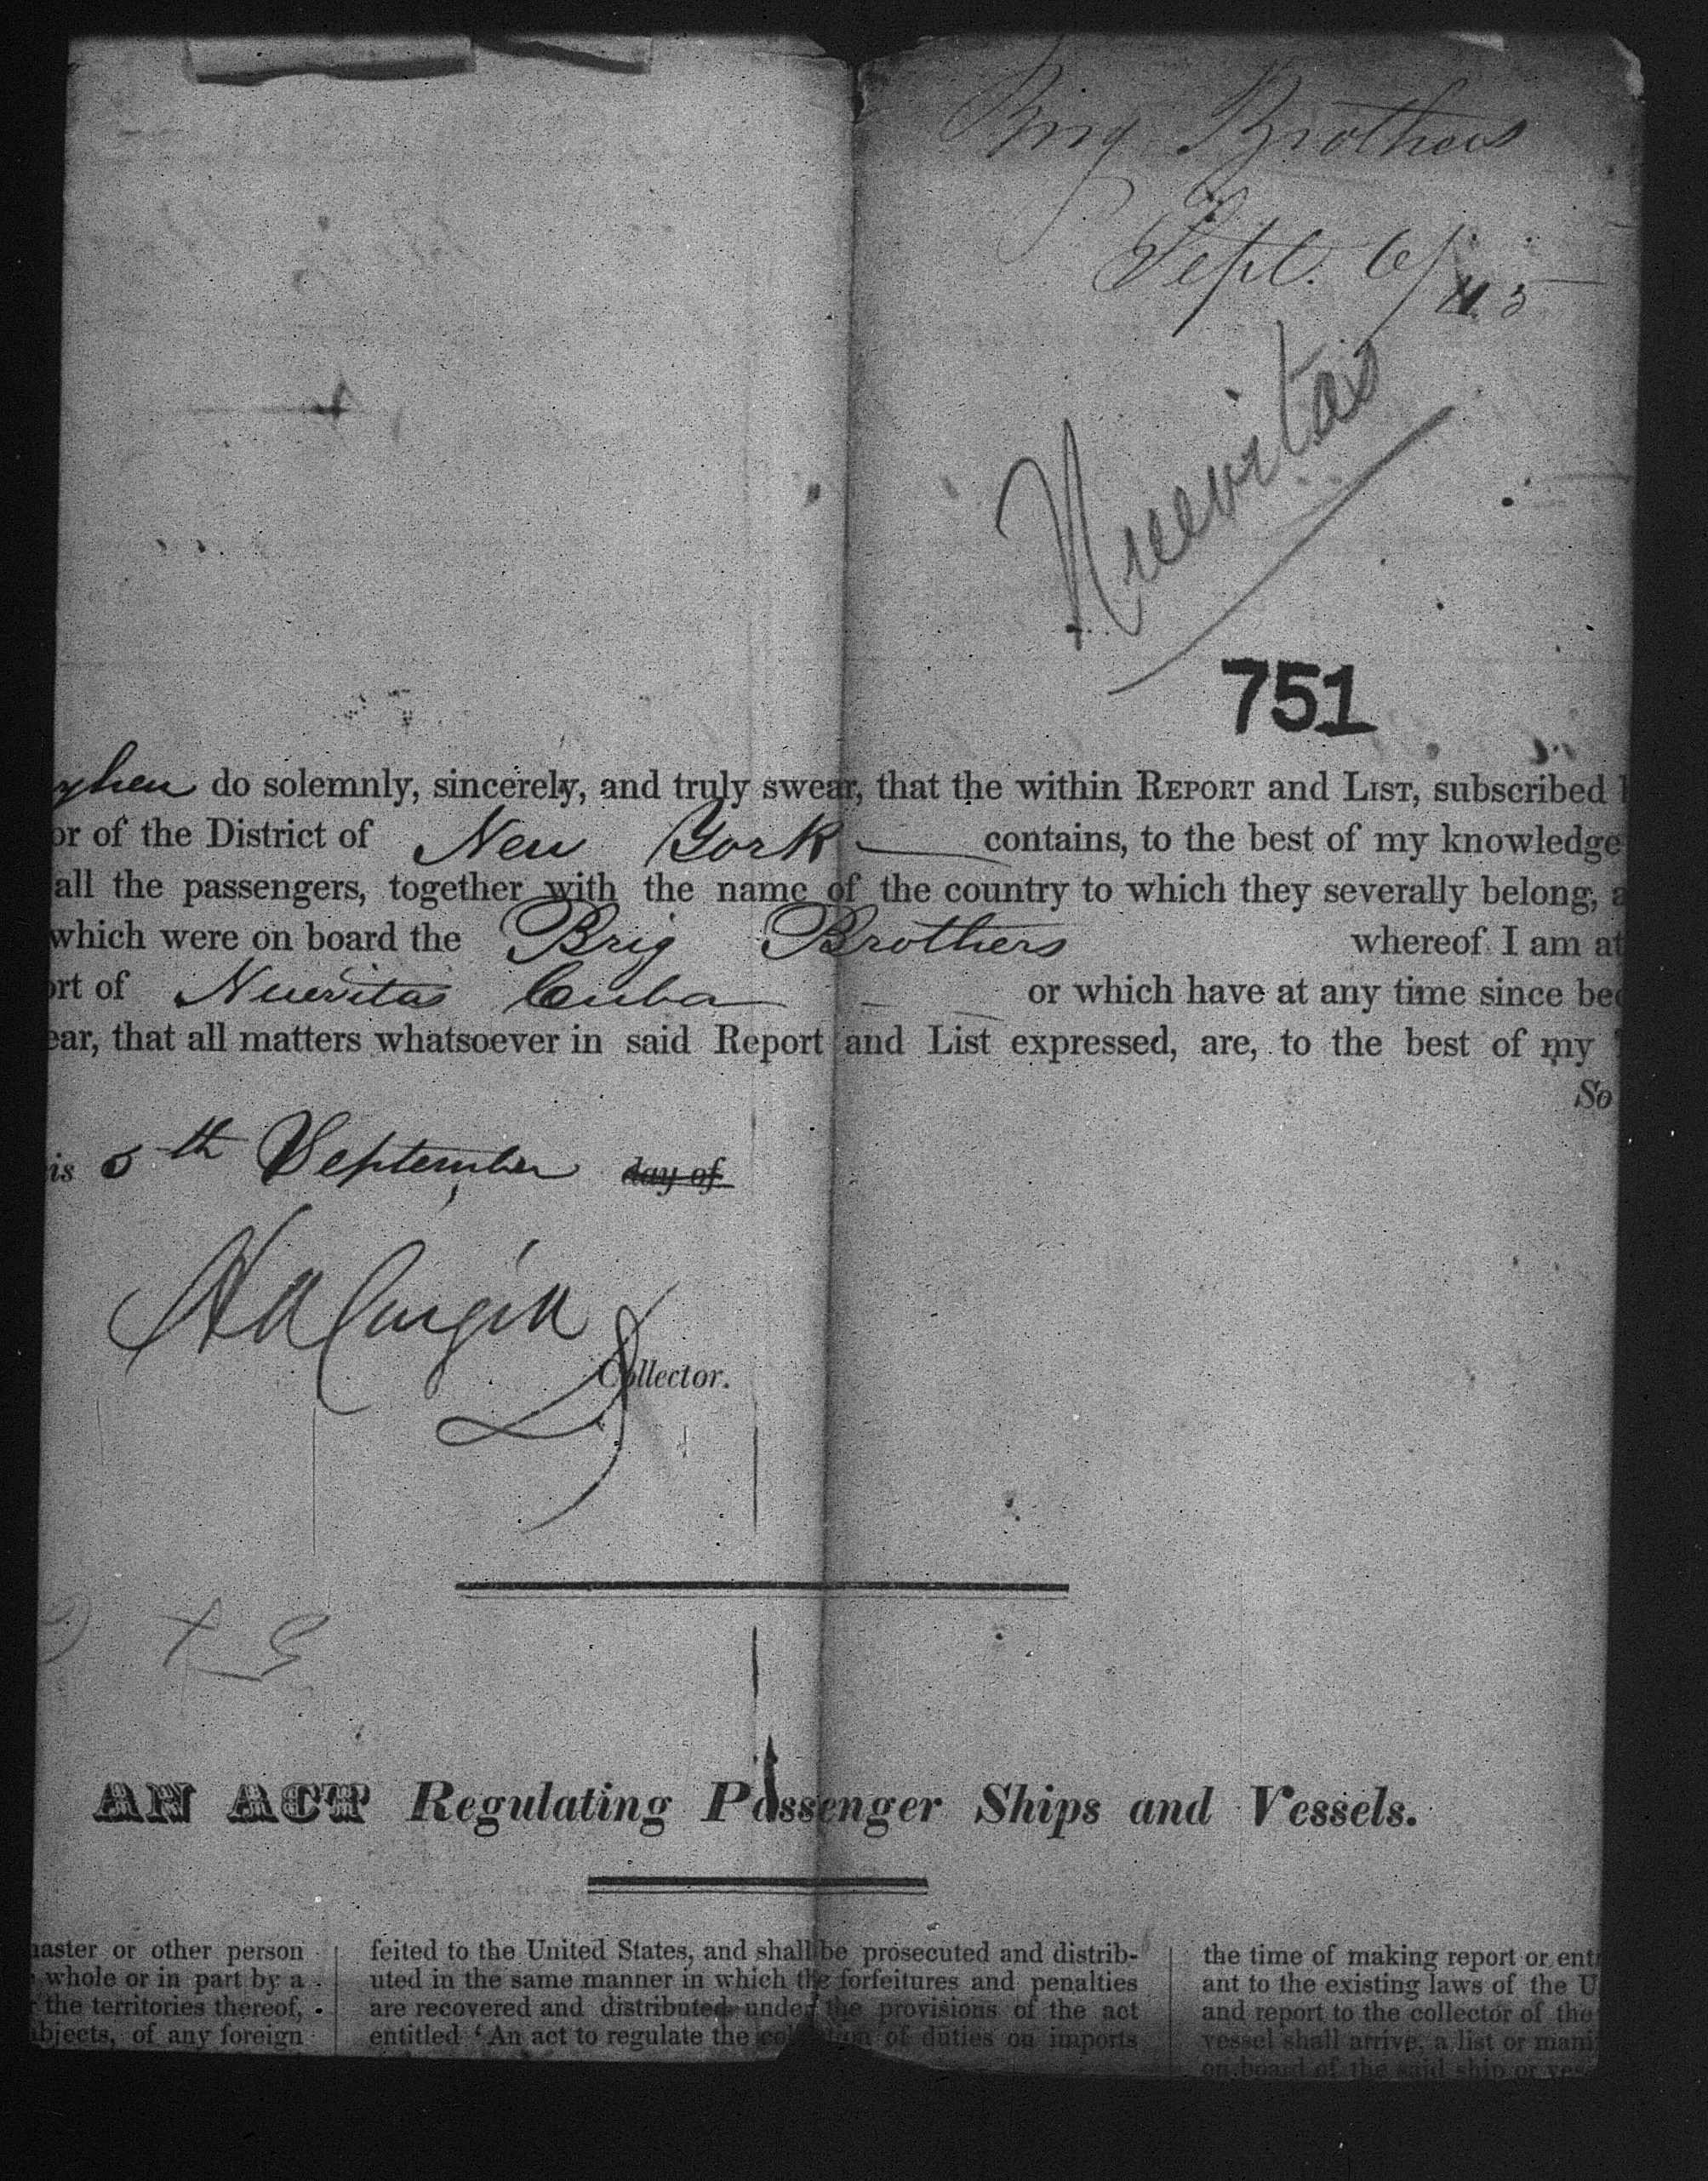 Brig Brothers
Sept. 6/
Nuevitas
751
do solemnly, sincerely, and truly swear, that the within REPORT and LIST, subscribed
or of the District of New York contains, to the best of my knowledge
all the passengers, together with the name of the country to which they severally belong,
which were on board the Brig Brothers whereof I am at
ort of Nuevitas Cuba or which have at any time since bec
ear, that all matters whatsoever in said Report and List expressed, are, to the best of my
So
is 5th September day of
Collector.
AN ACT Regulating Passenger Ships and Vessels.
aster or other person
whole or in part by a
the territories thereof,
bjects, of any foreign
feited to the United States, and shall be prosecuted and distrib-
uted in the same manner in which the forfeitures and penalties
are recovered and distributed under the provisions of the act
entitled 'An act to regulate the collection of duties on imports
the time of making report or ent
ant to the existing laws of the U
and report to the collector of the
vessel shall arrive, a list or mani
on board of the said ship or ves